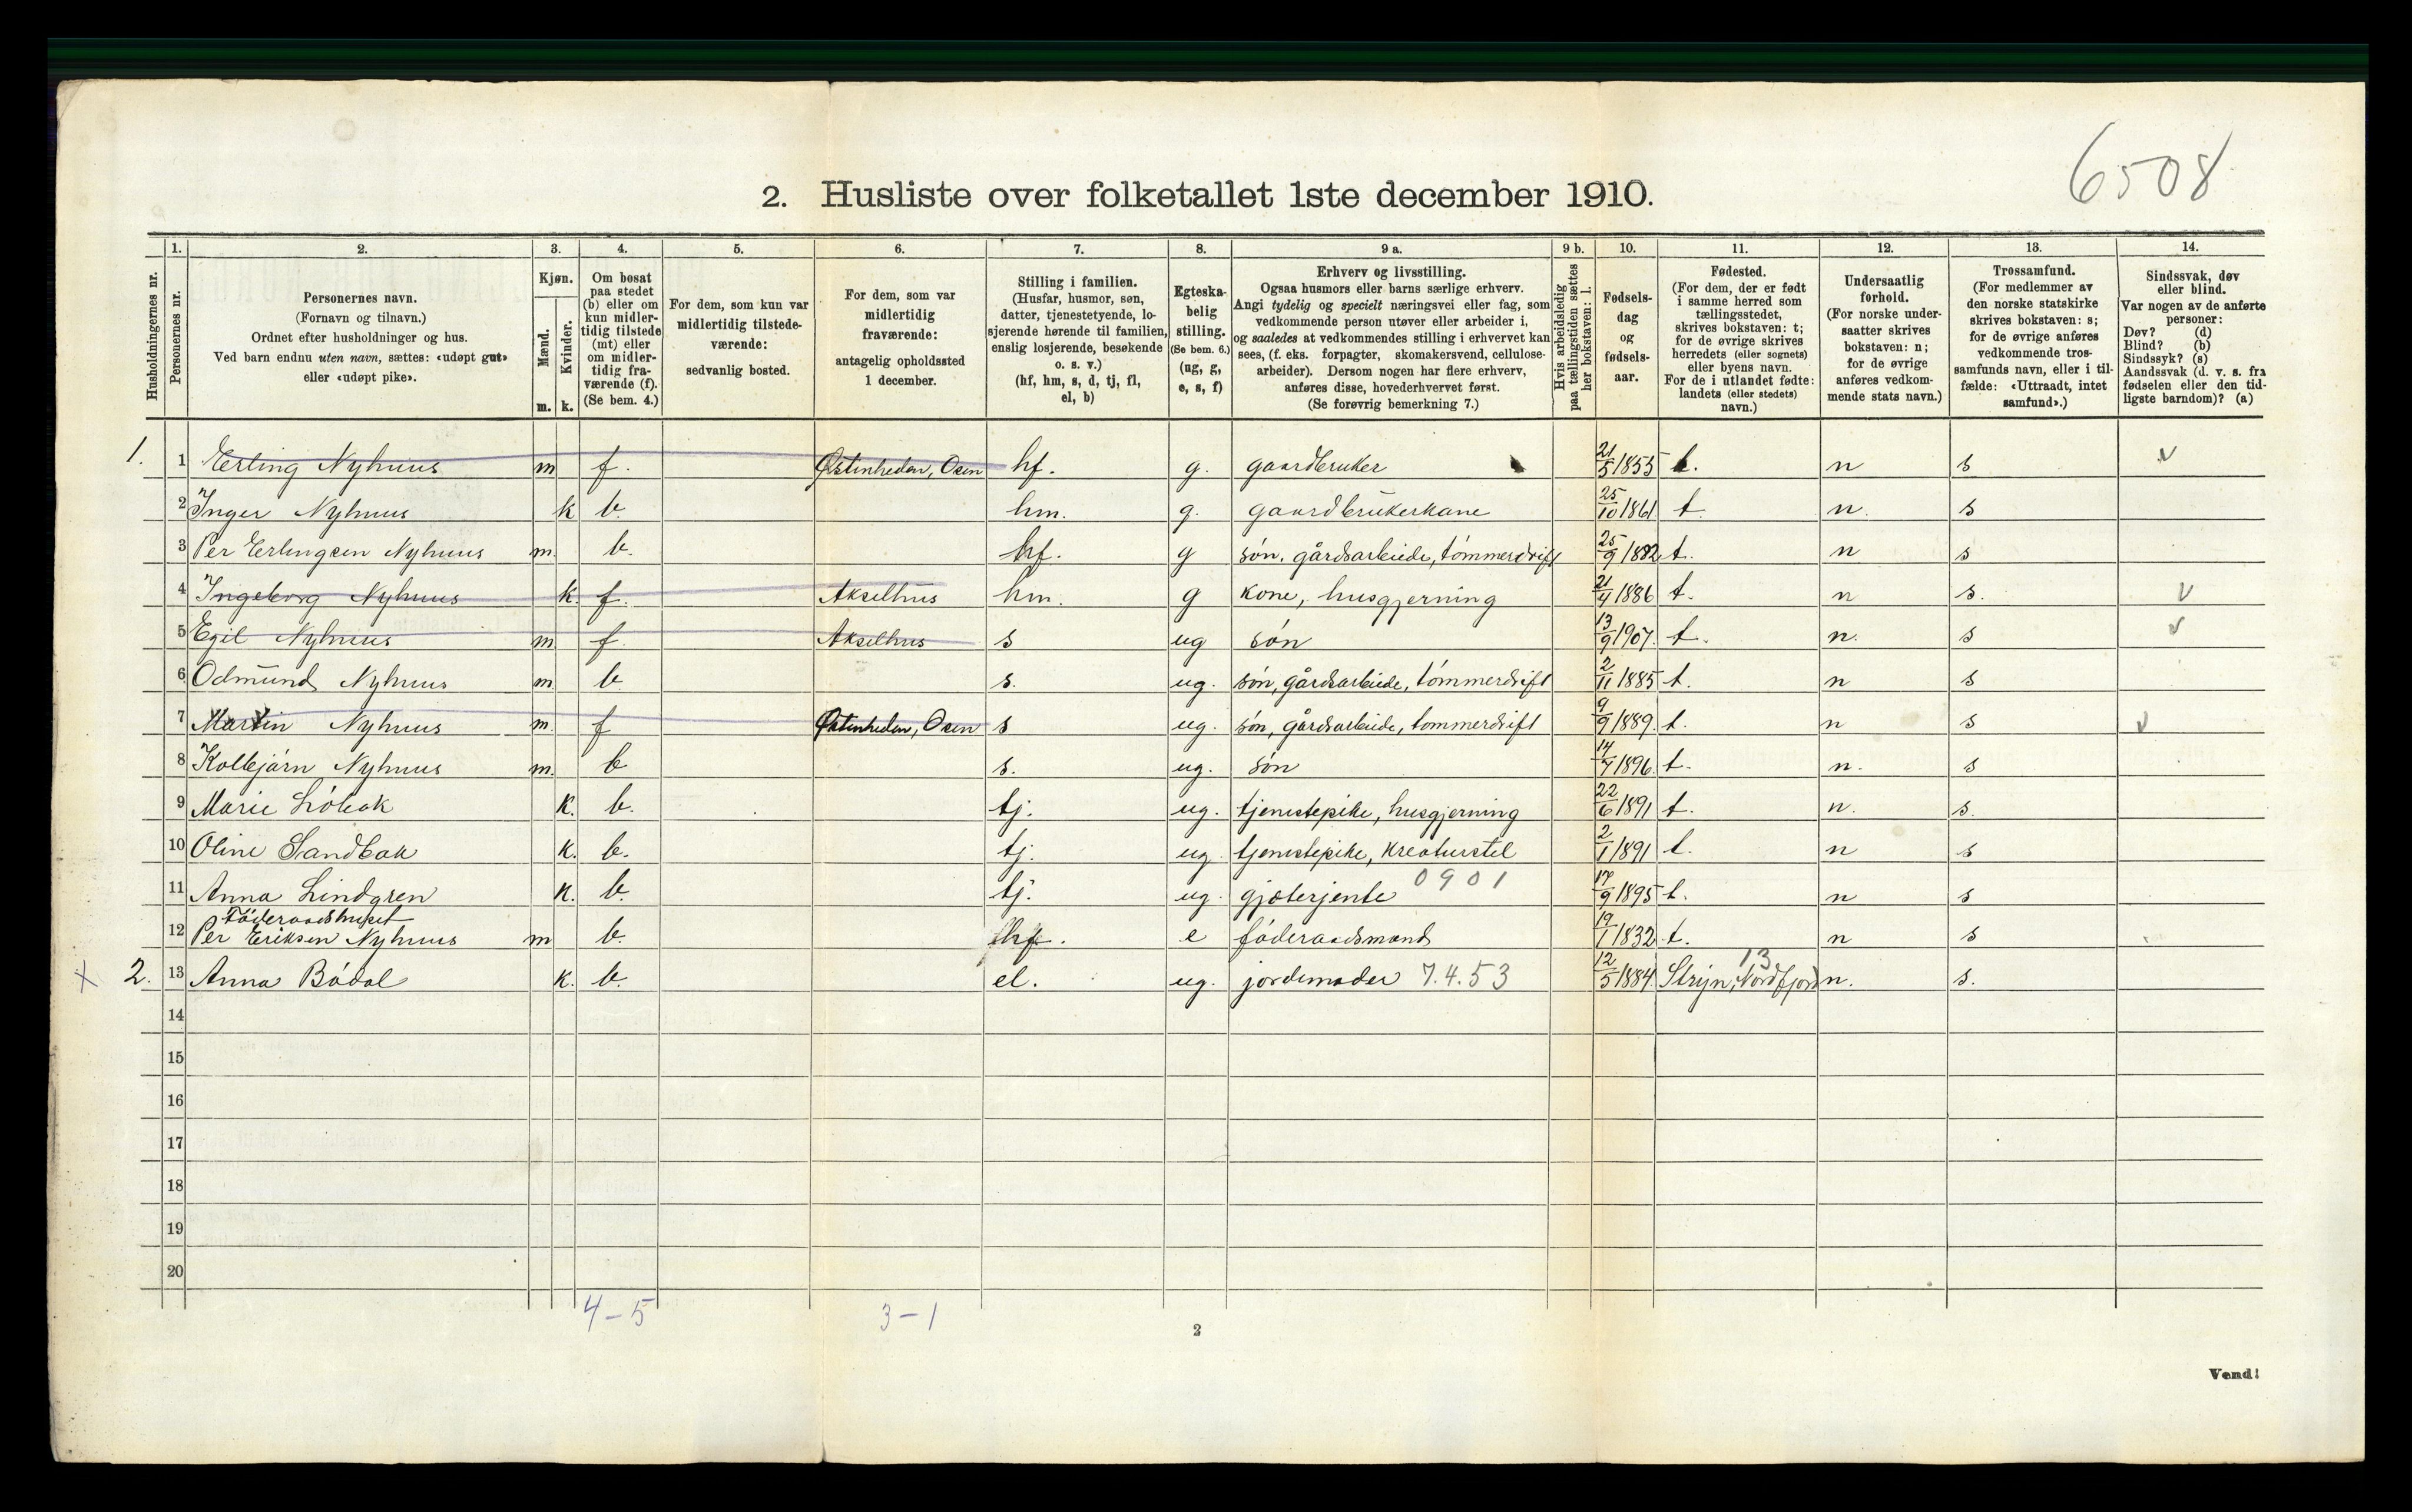 6508
2. Husliste over folketallet 1ste december 1910.
Husholdningernes nr.
1. Personernes nr.
2. Personernes navn.
(Fornavn og tilnavn.)
Ordnet efter husholdninger og hus.
Ved barn endnu uten navn, sættes: «udøpt gut»
eller «udøpt pike».
3. Kjøn.
Mænd. m.
Kvinder. k.
4. Om bosat
paa stedet
(b) eller om
kun midler-
tidig tilstede
(mt) eller
om midler-
tidig fra-
værende (f).
(Se bem. 4.)
5. For dem, som kun var
midlertidig tilstede-
værende:
sedvanlig bosted.
6. For dem, som var
midlertidig
fraværende:
antagelig opholdssted
1 december.
7. Stilling i familien.
(Husfar, husmor, søn,
datter, tjenestetyende, lo-
sjerende hørende til familien,
enslig losjerende, besøkende
o. s. v.)
(hf, hm, s, d, tj, fl,
el, b)
8. Egteska-
belig
stilling.
(Se bem. 6.)
(ug, g,
e, s, f)
9 a. Erhverv og livsstilling.
Ogsaa husmors eller barns særlige erhverv.
Angi tydelig og specielt næringsvei eller fag, som
vedkommende person utøver eller arbeider i,
og saaledes at vedkommendes stilling i erhvervet kan
sees, (f. eks. forpagter, skomakersvend, cellulose-
arbeider). Dersom nogen har flere erhverv,
anføres disse, hovederhvervet først.
(Se forøvrig bemerkning 7.)
9 b. Hvis arbeidsledig
paa tællingstiden sættes
her bokstaven: l.
10. Fødsels-
dag
og
fødsels-
aar.
11. Fødested.
(For dem, der er født
i samme herred som
tællingsstedet,
skrives bokstaven: t;
for de øvrige skrives
herredets (eller sognets)
eller byens navn.
For de i utlandet fødte:
landets (eller stedets)
navn.)
12. Undersaatlig
forhold.
(For norske under-
saatter skrives
bokstaven: n;
for de øvrige
anføres vedkom-
mende stats navn.)
13. Trossamfund.
(For medlemmer av
den norske statskirke
skrives bokstaven: s;
for de øvrige anføres
vedkommende tros-
samfunds navn, eller i til-
fælde: «Uttraadt, intet
samfund».)
14. Sindssvak, døv
eller blind.
Var nogen av de anførte
personer:
Døv? (d)
Blind? (b)
Sindssyk? (s)
Aandssvak (d. v. s. fra
fødselen eller den tid-
ligste barndom)? (a)
1. 1 Erling Nyhuus m f. Østenheden, Osen hf. g. gaardbruker 21/5 1855 t. n s v
2 Inger Nyhuus k b. hm. g. gaardbrukerkane 25/10 1861 t. n. s
3 Per Erlingsen Nyhuus m. b. hf. g søn. gårdsarbeide, tömmerdrift 25/9 1882 t. n s
4 Ingeborg Nyhuus k. f. Akselhus hm. g kone, husgjerning 21/4 1886 t. n s. v
5 Egil Nyhuus m f. Akselhus s ug søn 13/9 1907. t. n. s v
6 Odmund Nyhuus m. b. s. ug. søn, gårdsarbeide, tömmerdrift 2/11 1885 t. n s
7 Martin Nyhuus m. f Østenheden, Osen s ug. søn, gårdsarbeide, tommerdrift 9/9 1889. t. n s v
8 Kolbjørn Nyhuus m. b s. ug. søn 14/7 1896. t. n. s
9 Marie Löbak k. b. tj. ug. tjenestepike, husgjerning 22/6 1891 t. n. s.
10 Oline Sandbak k. b. tj. ug. tjenestepike, kreaturstel 2/1 1891 t. n s
11 Anna Lindgren k. b. tj. ug. gjæterjente 0901 17/9 1895 t. n s
Föderaadshuset
12 Per Eriksen Nyhuus m b. hf. e föderaadsmand 19/1 1832 t. n s
x 2. 13 Anna Bödal k. b. el. ug. jordemoder 7.4.53 12/5 1884. Stryn, Nordfjord 13 n. s.
14
15
16
17
18
19
20
4-5 3-1
2
Vend!